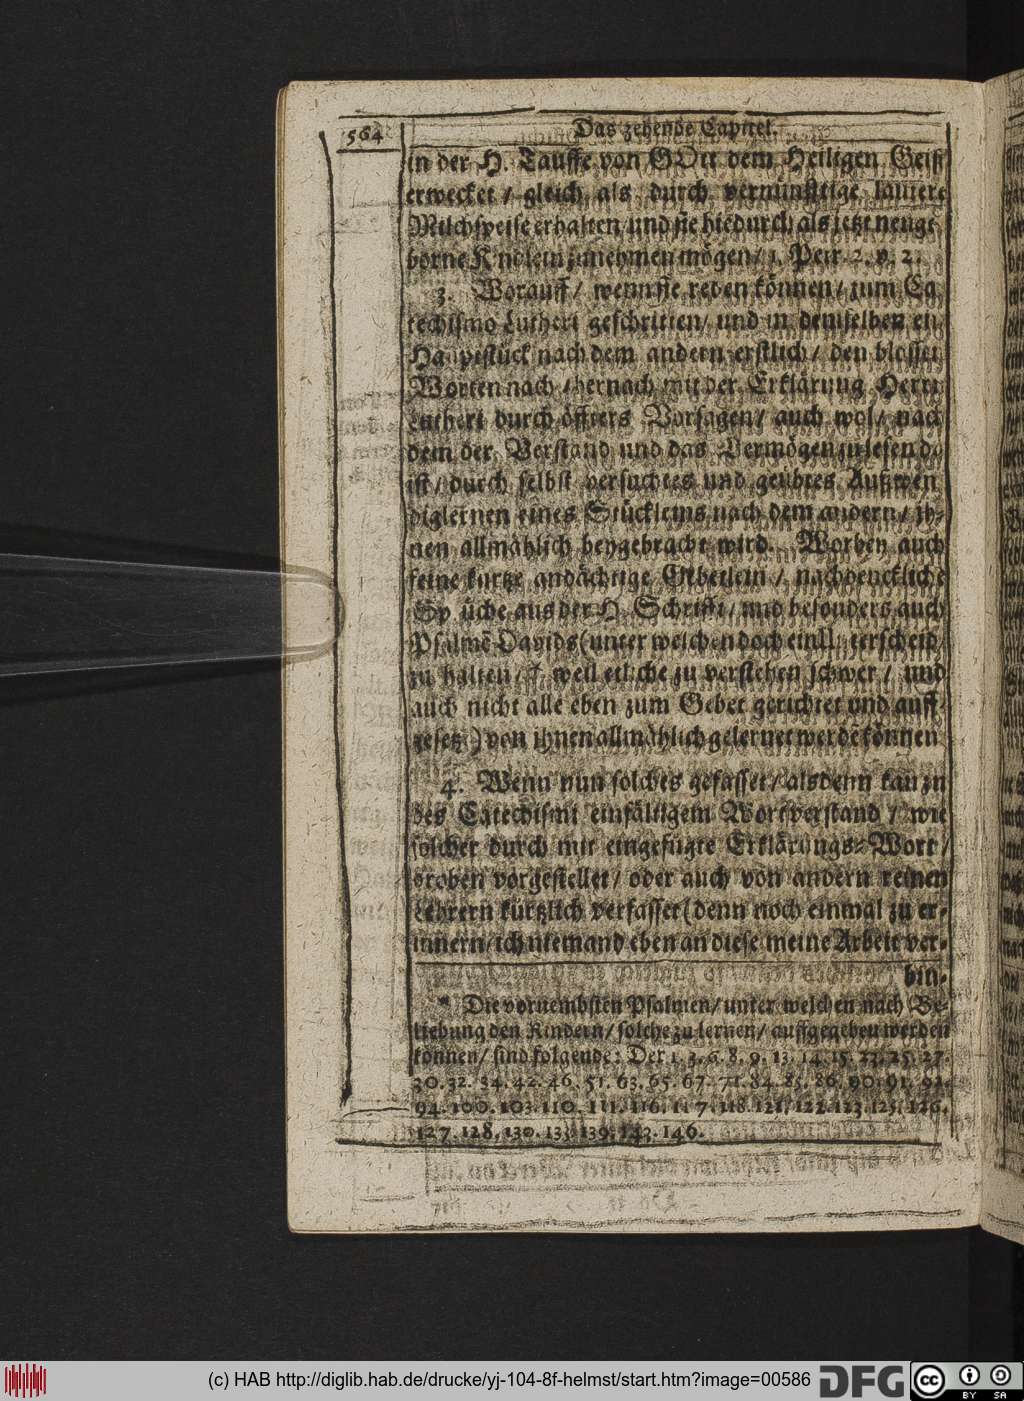 564 Das zehende Capitel.
in der H. Tauffe von GOtt dem Heiligen Geist
erwecket / gleich als durch vernünfftige lautere
Milchspeise erhalten und sie hiedurch als jetzt neuge
borne K'ndlein zunehmen mögen / 1. Petr. 2. v. 2.
3. Worauff / wenn sie reden können / zum Ca
techismo Lutheri geschritten / und in demselben ein
Hauptstück nach dem andern erstlich / den blossen
Worten nach / hernach mit der Erklärung Herrn
Lutheri durch öffters Vorsagen / auch wol / nach
dem der Verstand und das Vermögen zu lesen da
ist / durch selbst versuchtes und geübtes Außwen
diglernen eines Stückleins nach dem andern / ih-
nen allmählich beygebracht wird. Worbey auch
feine kurtze andächtige Gebetlein / nachdenckliche
Sp üche aus der H. Schrifft / und besonders auch
Psalmē Davids (unter welchen doch ein terscheid
zu halten / * weil etliche zu verstehen schwer / und
auch nicht alle eben zum Gebet gerichtet und auff-
gesetzt) von ihnen allmählich gelernet werdē können
4. Wenn nun solches gefasset / alsdenn kan zu
des Catechismi einfältigem Wortverstand / wie
solcher durch mit eingefügte Erklärungs-Wort /
droben vorgestellet / oder auch von andern reinen
Lehrern kürtzlich verfasset (denn noch einmal zu er-
innern / ich niemand eben an diese meine Arbeit ver-
bin-
* Die vornembsten Psalmen / unter welchen nach Be-
liebung den Kindern / solche zu lernen / auffgegeben werden
können / sind folgende: Der 1. 3. 6. 8. 9. 13. 14. 15. 23. 25. 27.
30. 32. 34. 42. 46. 51. 63. 65. 67. 71. 84. 85. 86. 90. 91. 92.
94. 100. 103. 110. 111. 116. 117. 118. 121. 122. 123. 125. 126.
127. 128. 130. 133. 139. 143. 146.
(c) HAB http://diglib.hab.de/drucke/yj-104-8f-helmst/start.htm?image=00586 DFG cc BY SA